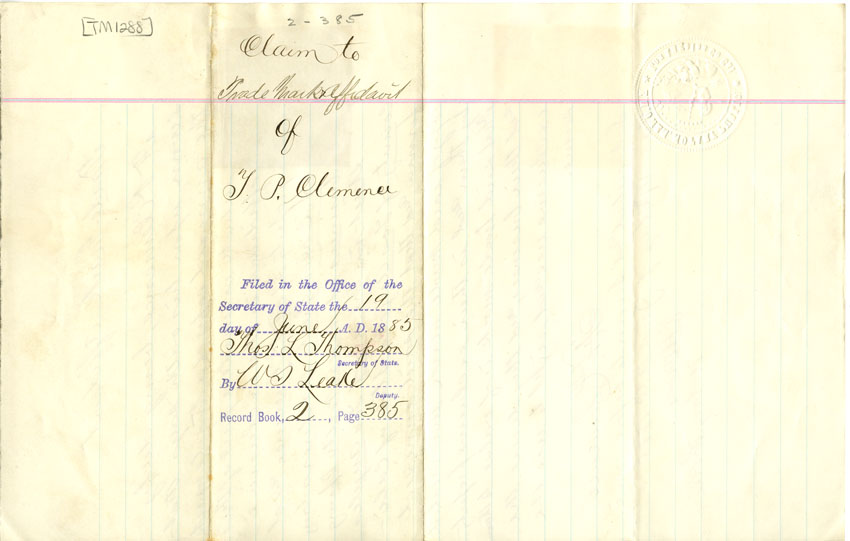 [TM1288]
2-385
Claim to
Trade Mark & Affidavit
of
T. P. Clemence
Filed in the Office of the
Secretary of State the 19
day of June A. D. 1885
Thos L Thompson
Secretary of State.
By W S Leake
Deputy.
Record Book, 2, Page 385